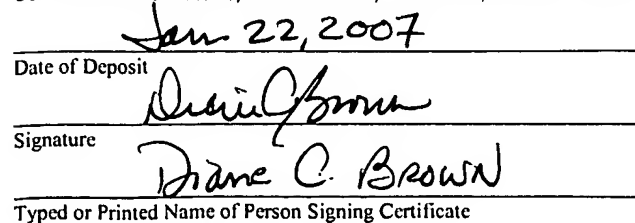 Jan 22, 2007
Date of Deposit
Diane C Brown
Signature
Diane C. BROWN
Typed or Printed Name of Person Signing Certificate